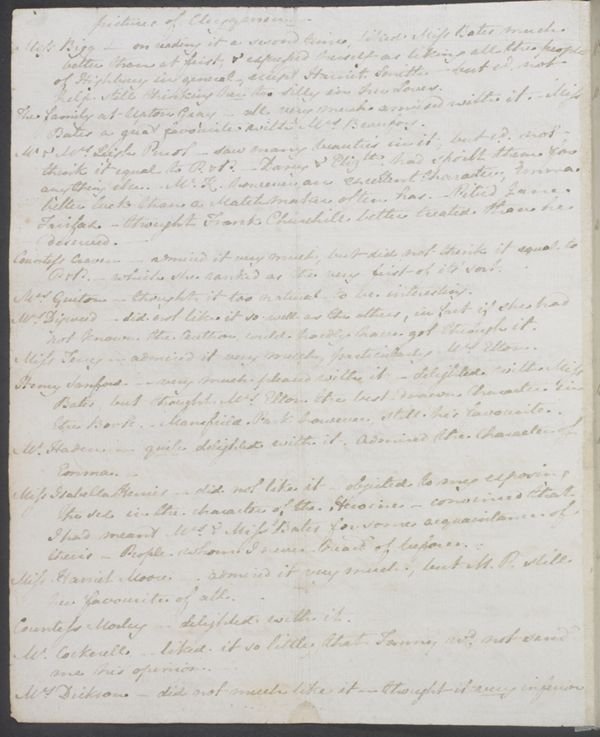 pictures of Clergymen.—
Miss Bigg — on reading it a second time, liked Miss Bates much
better than at first, & expressed herself as liking all the people
of Highbury in general, except Harriet Smith — but cd. not
help still thinking her too silly in her Loves.
The family at Upton Gray — all very much amused with it. — Miss
Bates a great favourite with Mrs Beaufoy.
Mr & Mrs Leigh Perrot — saw many beauties in it, but cd. not
think it equal to P. & P. — Darcy & Elizth had spoilt them for
anything else. — Mr K. however, an excellent Character; Emma
better luck than a Matchmaker often has. — Pitied Jane
Fairfax — thought Frank Churchill better treated than he
deserved. —
Countess Craven — admired it very much, but did not think it equal to
P & P. — which she ranked as the very first of it's sort.
Mrs Guiton — thought it too natural to be interesting.
Mrs Digweed — did not like it so well as the others, in fact if she had
not known the Author, could hardly have got through it.
Miss Terry — admired it very much, particularly Mrs Elton.
Henry Sanford — very much pleased with it — delighted with Miss
Bates, but thought Mrs Elton the best-drawn Character in
the Book. — Mansfield Park however, still his favourite.
Mr Haden — quite delighted with it. Admired the Character of
Emma. —
Miss Isabella Herries — did not like it — objected to my exposing
the sex in the character of the Heroine — convinced that
I had meant Mrs & Miss Bates for some acquaintance of
theirs — People whom I never heard of before. —
Miss Harriet Moore — admired it very much, but M. P. still
her favourite of all. —
Countess Morley — delighted with it.
Mr Cockerelle — liked it so little, that Fanny wd. not send
me his opinion. —
Mrs Dickson — did not much like it — thought it very inferior